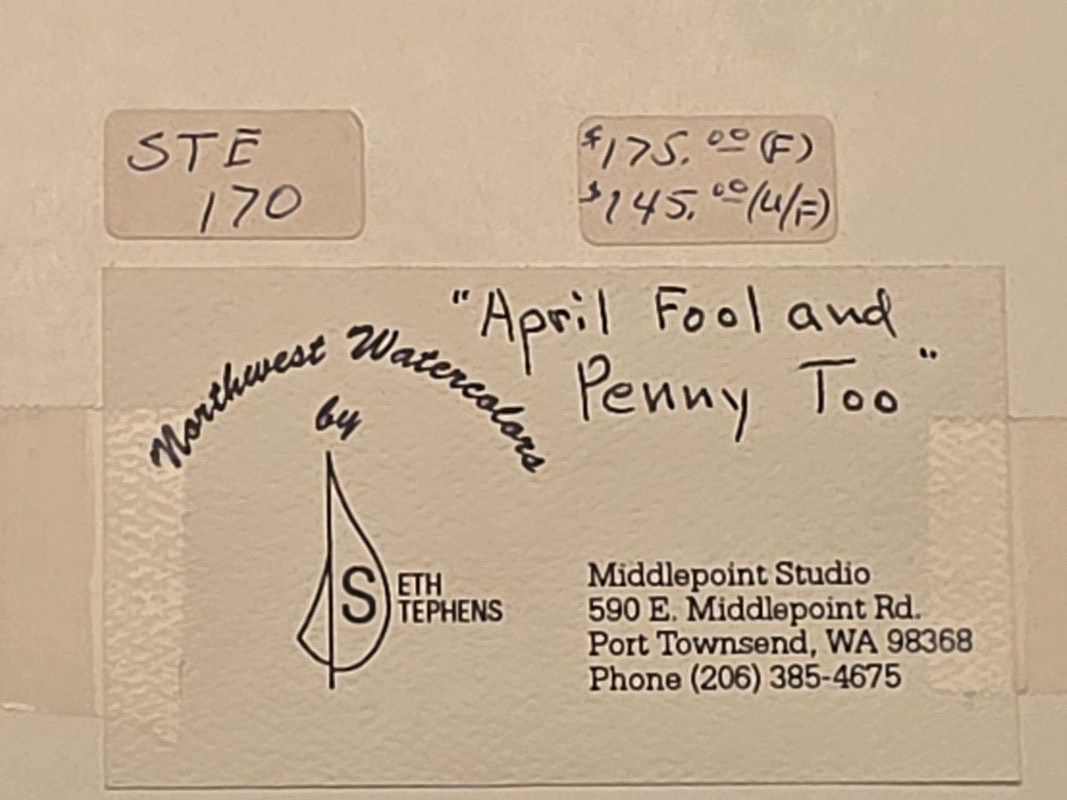 STE
170
$175.00 (F)
$145.00 (U/F)
"April Fool and
Penny Too"
Northwest Watercolors
by
SETH
STEPHENS
Middlepoint Studio
590 E. Middlepoint Rd.
Port Townsend, WA 98368
Phone (206) 385-4675